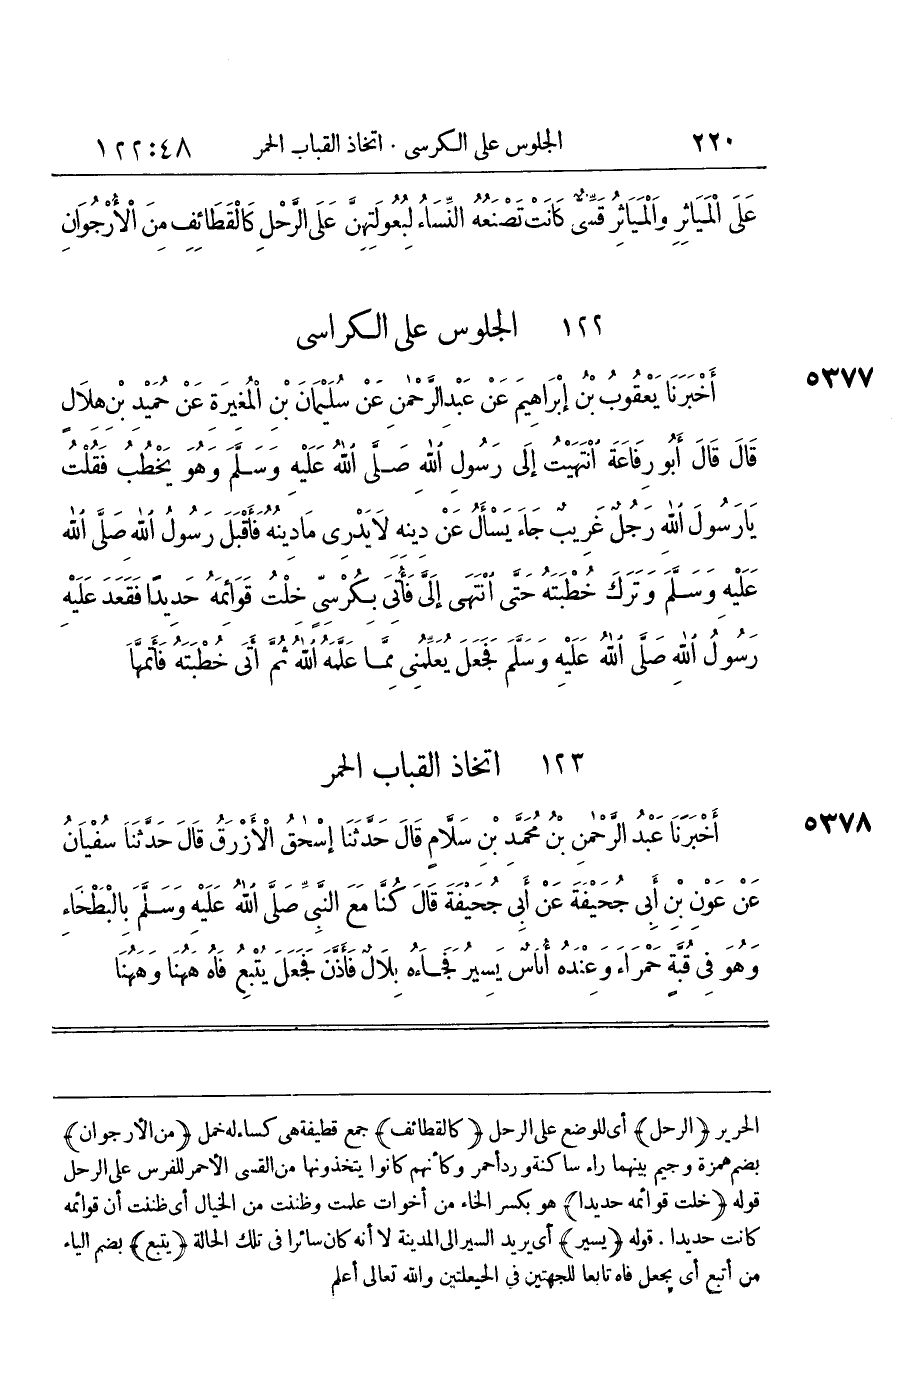 ٢٢٠ الجلوس على الكرسى . اتخاذ القباب الحمر ٤٨:١٢٢
عَلَى الْمَيَاثِرِ وَالْمَيَاثِرُ قَسِّىٌّ كَانَتْ تَصْنَعُهُ النِّسَاءُ لِبُعُولَتِهِنَّ عَلَى الرَّحْلِ كَالْقَطَائِفِ مِنَ الْأُرْجُوَانِ
١٢٢ الجلوس على الكراسى
٥٣٧٧ أَخْبَرَنَا يَعْقُوبُ بْنُ إِبْرَاهِيمَ عَنْ عَبْدِ الرَّحْمٰنِ عَنْ سُلَيْمَانَ بْنِ الْمُغِيرَةِ عَنْ حُمَيْدِ بْنِ هِلَالٍ
قَالَ قَالَ أَبُو رِفَاعَةَ انْتَهَيْتُ إِلَى رَسُولِ اللهِ صَلَّى اللهُ عَلَيْهِ وَسَلَّمَ وَهُوَ يَخْطُبُ فَقُلْتُ
يَارَسُولَ اللهِ رَجُلٌ غَرِيبٌ جَاءَ يَسْأَلُ عَنْ دِينِهِ لَايَدْرِى مَادِينُهُ فَأَقْبَلَ رَسُولُ اللهِ صَلَّى اللهُ
عَلَيْهِ وَسَلَّمَ وَتَرَكَ خُطْبَتَهُ حَتَّى انْتَهَى إِلَىَّ فَأُتِىَ بِكُرْسِىٍّ خِلْتُ قَوَائِمَهُ حَدِيدًا فَقَعَدَ عَلَيْهِ
رَسُولُ اللهِ صَلَّى اللهُ عَلَيْهِ وَسَلَّمَ فَجَعَلَ يُعَلِّمُنِى مِمَّا عَلَّمَهُ اللهُ ثُمَّ أَتَى خُطْبَتَهُ فَأَتَمَّهَا
١٢٣ اتخاذ القباب الحمر
٥٣٧٨ أَخْبَرَنَا عَبْدُ الرَّحْمٰنِ بْنُ مُحَمَّدِ بْنِ سَلَّامٍ قَالَ حَدَّثَنَا إِسْحٰقُ الْأَزْرَقُ قَالَ حَدَّثَنَا سُفْيَانُ
عَنْ عَوْنِ بْنِ أَبِى جُحَيْفَةَ عَنْ أَبِى جُحَيْفَةَ قَالَ كُنَّا مَعَ النَّبِىِّ صَلَّى اللهُ عَلَيْهِ وَسَلَّمَ بِالْبَطْحَاءِ
وَهُوَ فِى قُبَّةٍ حَمْرَاءَ وَعِنْدَهُ أُنَاسٌ يَسِيرٌ فَجَاءَهُ بِلَالٌ فَأَذَّنَ فَجَعَلَ يُتْبِعُ فَاهُ هٰهُنَا وَهٰهُنَا
الحرير ﴿الرحل﴾ أى للوضع على الرحل ﴿كالقطائف﴾ جمع قطيفة هى كساء له خمل ﴿من الأرجوان﴾
بضم همزة وجيم بينهما راء ساكنة ورد أحمر وكأنهم كانوا يتخذونها من القسى الأحمر للفرس على الرحل
قوله ﴿خلت قوائمه حديدا﴾ هو بكسر الخاء من أخوات علمت وظننت من الخيال أى ظننت أن قوائمه
كانت حديدا . قوله ﴿يسير﴾ أى يريد السير الى المدينة لا أنه كان سائرا فى تلك الحالة ﴿يتبع﴾ بضم الياء
من أتبع أى يجعل فاه تابعا للجهتين فى الحيعلتين والله تعالى أعلم